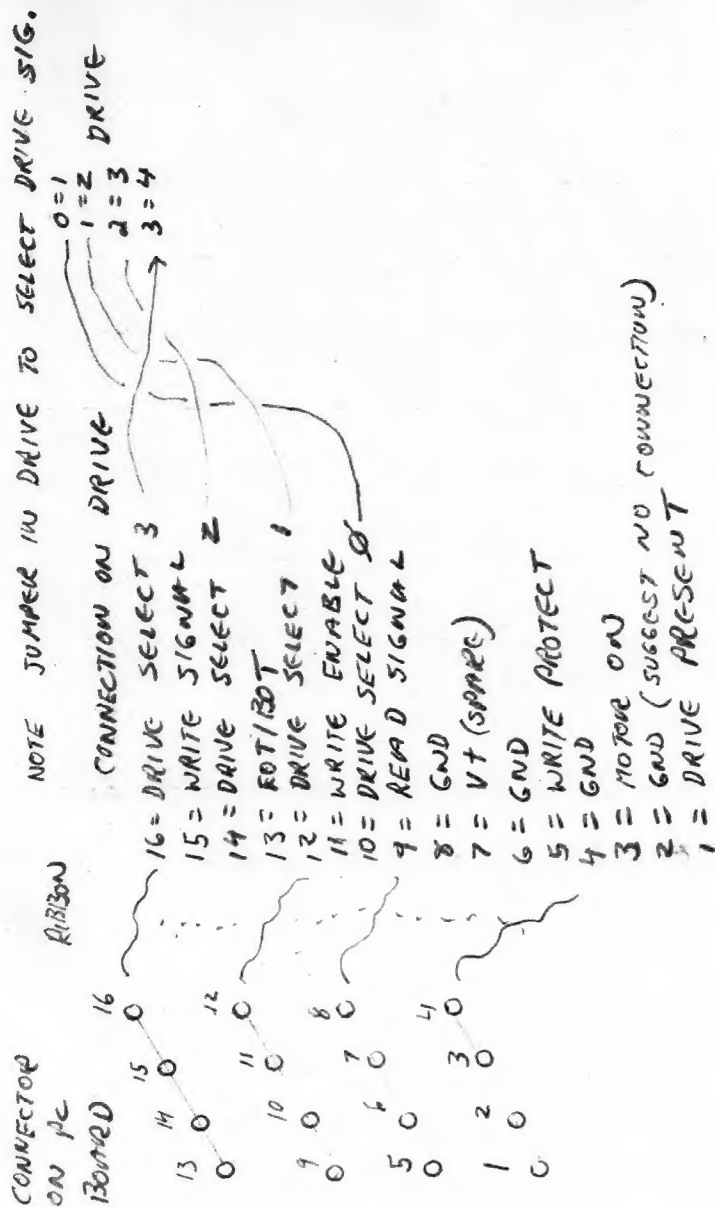 NOTE JUMPER IN DRIVE TO SELECT DRIVE SIG.
0=1
1=2 DRIVE
2=3
3=4
CONNECTOR
ON PC
BOARD
RIBBON
CONNECTION ON DRIVE
16 = DRIVE SELECT 3
15 = WRITE SIGNAL
14 = DRIVE SELECT 2
13 = EOT/BOT
12 = DRIVE SELECT 1
11 = WRITE ENABLE
10 = DRIVE SELECT Ø
9 = READ SIGNAL
8 = GND
7 = V+ (SPARE)
6 = GND
5 = WRITE PROTECT
4 = GND
3 = MOTOR ON
2 = GND (SUGGEST NO CONNECTION)
1 = DRIVE PRESENT
13 14 15 16
9 10 11 12
5 6 7 8
1 2 3 4